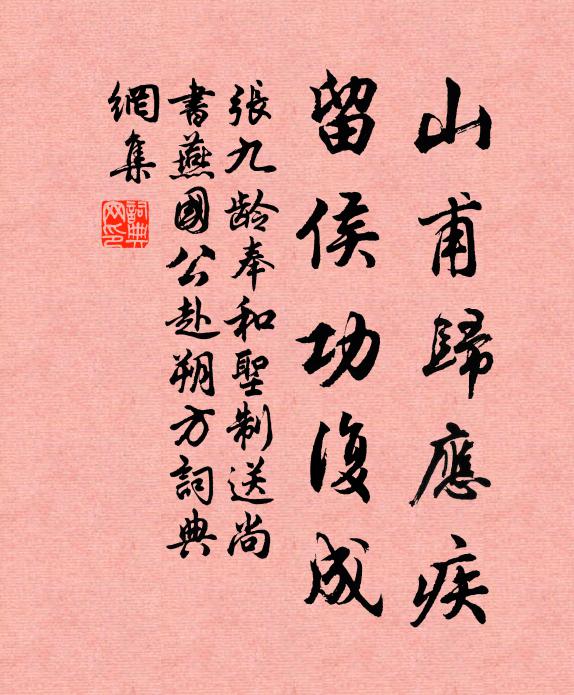 山甫歸應疾
留侯功復成
張九龄奉和聖制送尚
書燕國公赴朔方詞典
網集
詞典
网印